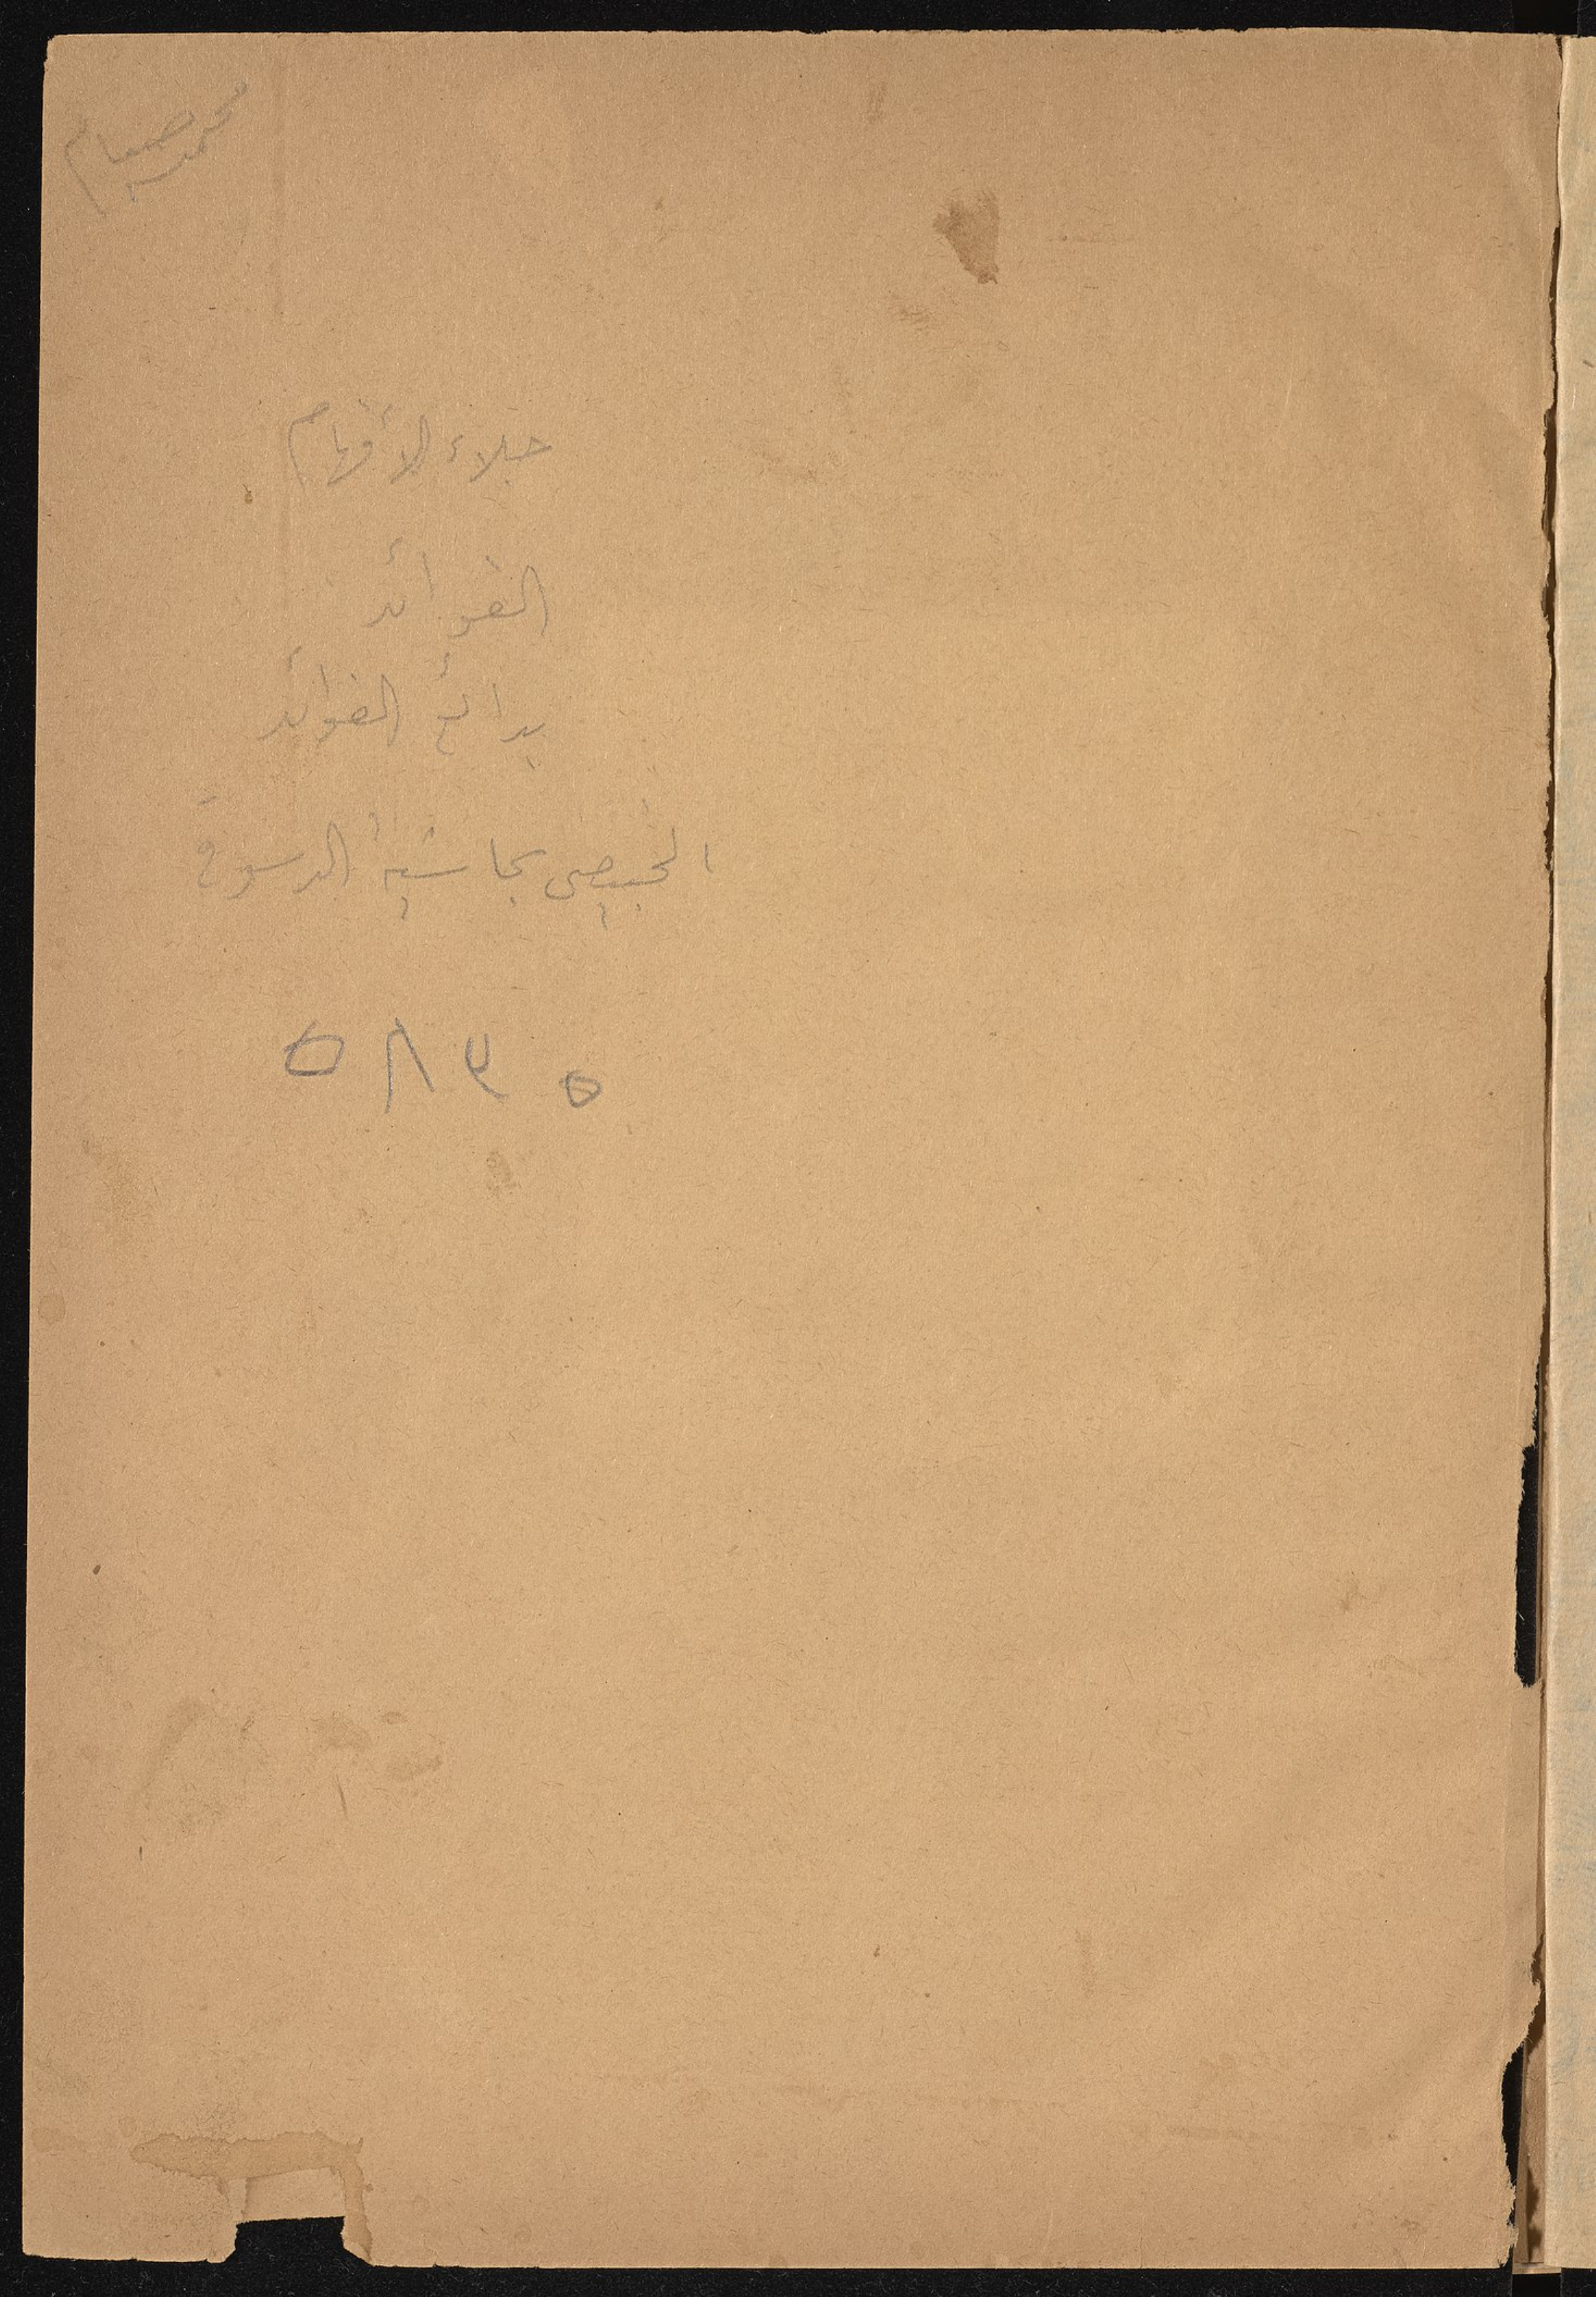 محمد صيام
جلاء الأفهام
الفوائد
بدائع الفوائد
الخبيصى بحاشية الدسوقى